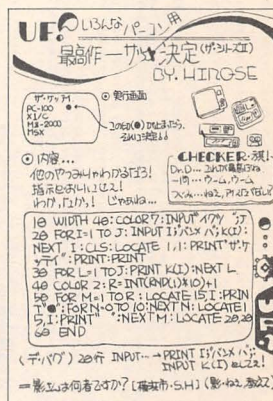 UF! いろんなパーコン用
最高作一ザ☆決定 (ザ・シリーズII)
BY. HIROSE
ザ・ケッテイ
PC-100
X1/C
MZ-2000
MSX
◎ 実行画面
この印(●)が止まったら、
それに決定!!
◎ 内容...
他のやつみりゃわかるだろ!
指示どおりにせえ!
わかったか!! じゃあね...
CHECKER・現!
10 WIDTH 40:COLOR7:INPUT"イクツ";J
20 FOR I=1 TO J:INPUT"I;バンメハ";K(I):
NEXT I:CLS:LOCATE 1,1:PRINT"ザ・ケ
ッテイ":PRINT:PRINT
30 FOR L=1 TO J:PRINT K(I):NEXT L
40 COLOR 2:R=INT(RND(1)*10)+1
50 FOR M=1 TO R:LOCATE 15,I:PRIN
T"●":FOR N=0 TO 10:NEXT N:LOCATE 1
5,I:PRINT" ":NEXT M:LOCATE 20,20
60 END
(デ・バグ) 20行 INPUT...→PRINT I;"バンメハ";:
INPUT K(I) としてネ!
=影さんは何者ですか? [福井市・S.H]